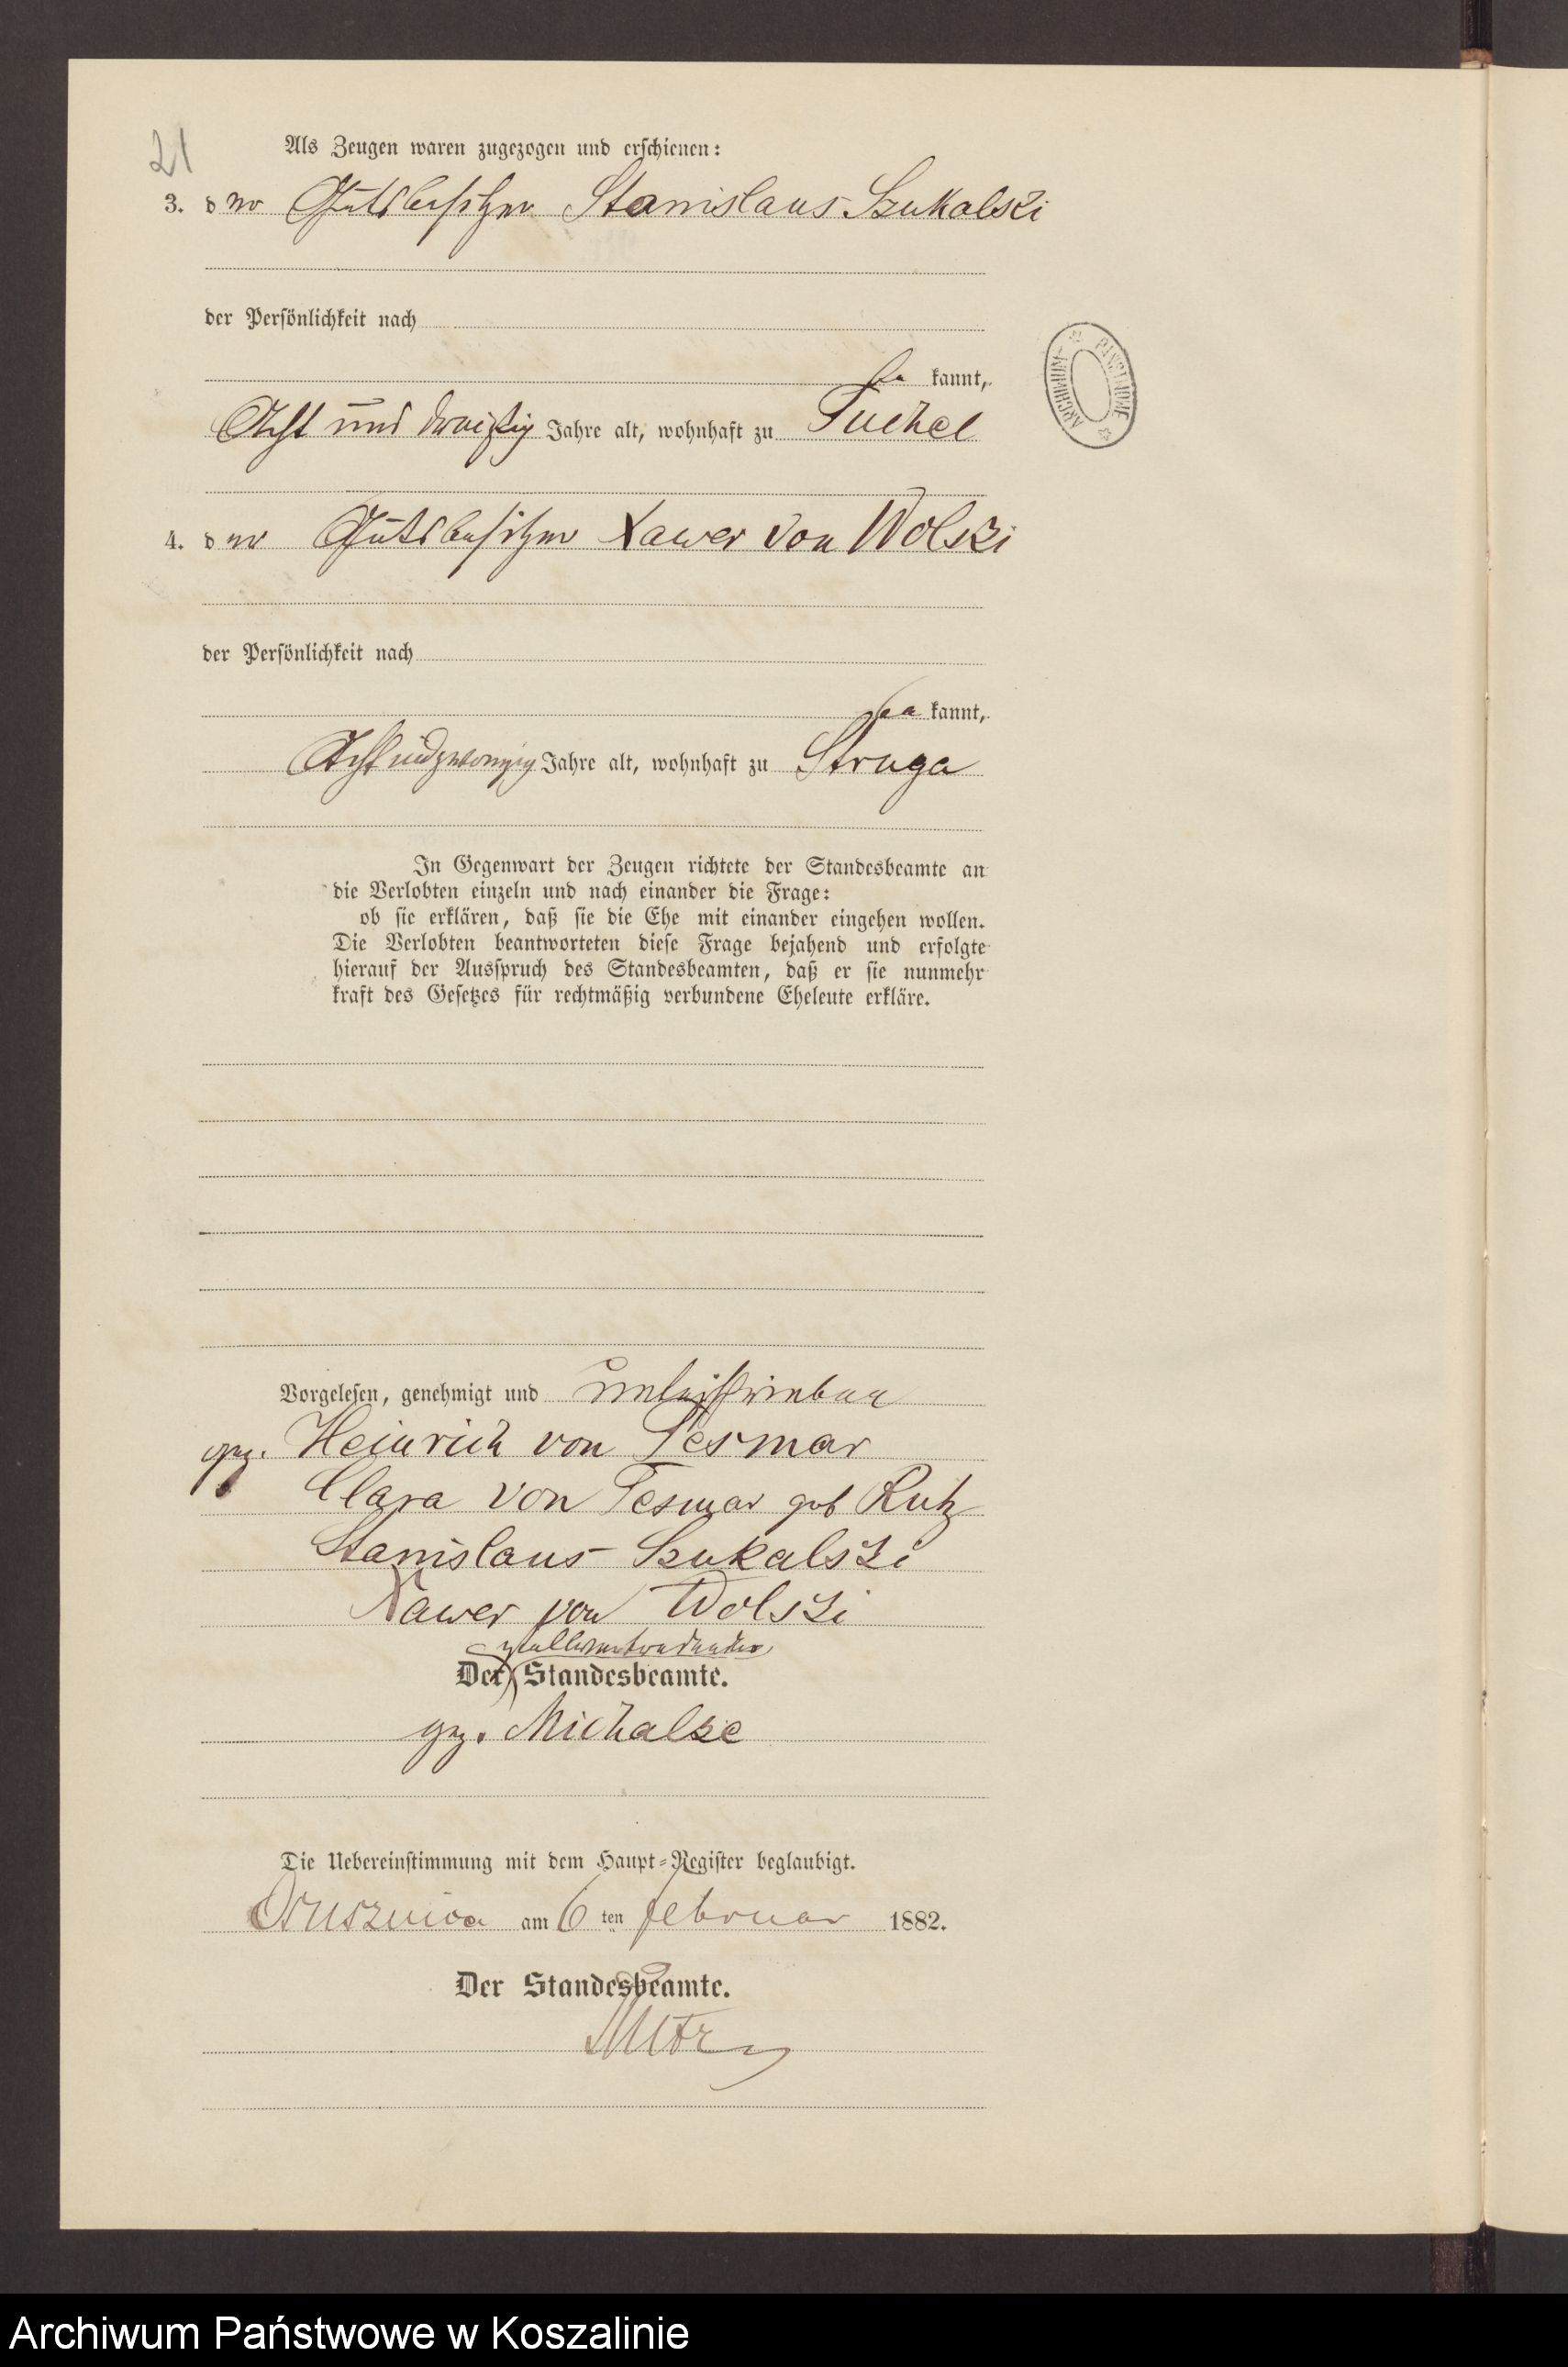 21
Als Zeugen waren zugezogen und erschienen:
3. der Gutsbesitzer Stanislaus Szukalski
der Persönlichkeit nach
be kannt,
Acht und dreißig Jahre alt, wohnhaft zu Tuchel
4. der Gutsbesitzer Xawer von Wolski
der Persönlichkeit nach
be kannt,
Achtundzwanzig Jahre alt, wohnhaft zu Struga
In Gegenwart der Zeugen richtete der Standesbeamte an
die Verlobten einzeln und nach einander die Frage:
ob sie erklären, daß sie die Ehe mit einander eingehen wollen.
Die Verlobten beantworteten diese Frage bejahend und erfolgte
hierauf der Ausspruch des Standesbeamten, daß er sie nunmehr
kraft des Gesetzes für rechtmäßig verbundene Eheleute erkläre.
Vorgelesen, genehmigt und unterschrieben
gez. Heinrich von Tesmar
Clara von Tesmar geb Rutz
Stanislaus Szukalski
Xawer von Wolski
stellvertretender
Der Standesbeamte.
gez. Michalke
Die Uebereinstimmung mit dem Haupt-Register beglaubigt.
Osusznica am 6 ten Februar 1882.
Der Standesbeamte.
ARCHIWUM PAŃSTWOWE
Archiwum Państwowe w Koszalinie